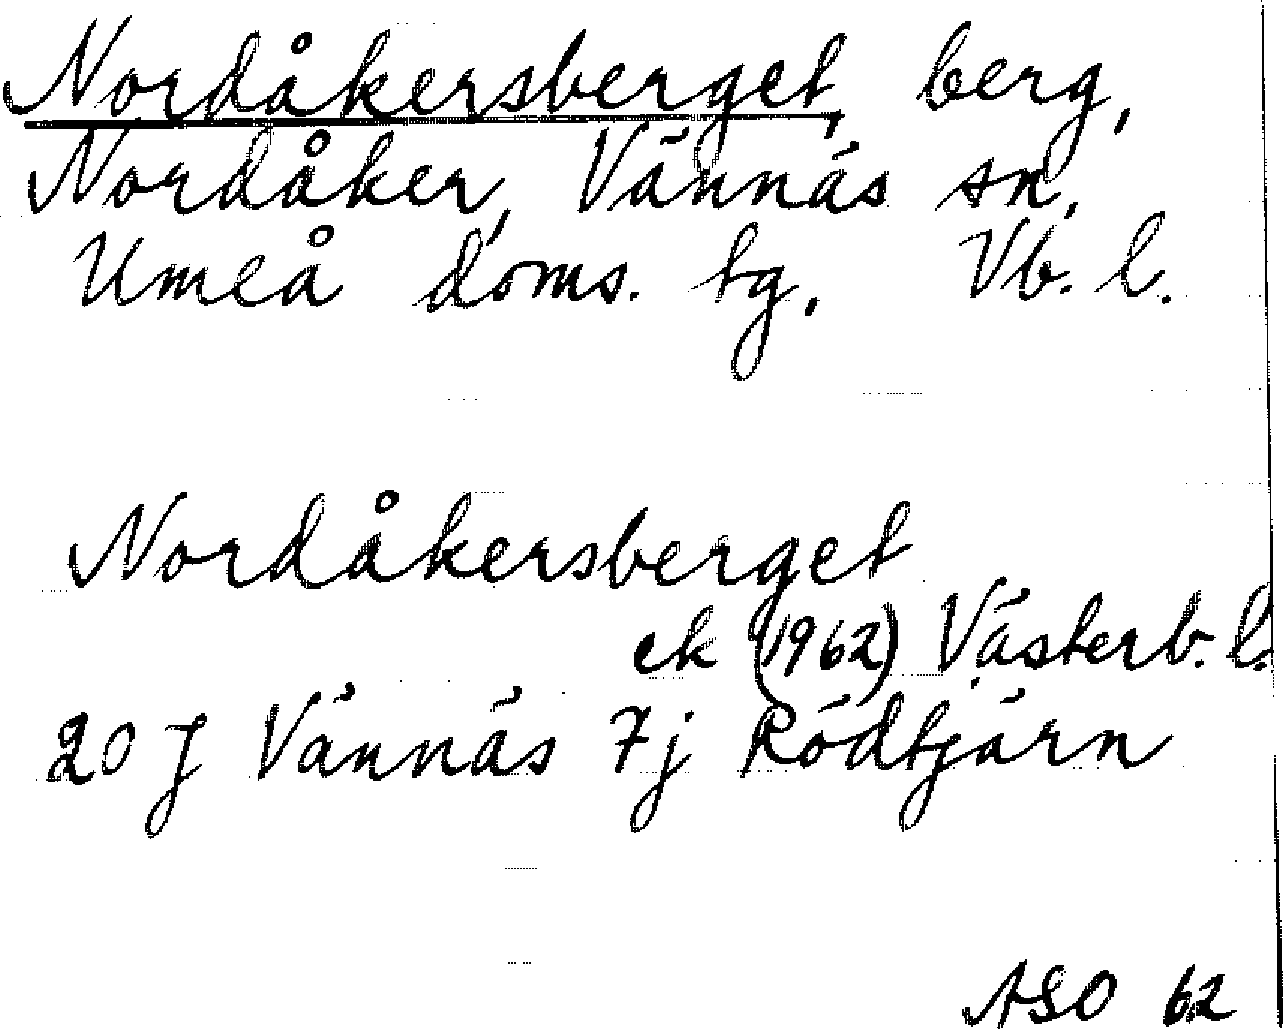 Nordåkersberget, berg,
Nordåker, Vännäs sn,
Umeå doms. tg. Vb. l.
Nordåkersberget
ek (1962) Västerb. l.
20 J Vännäs 7j Rödtjärn
ASO 62